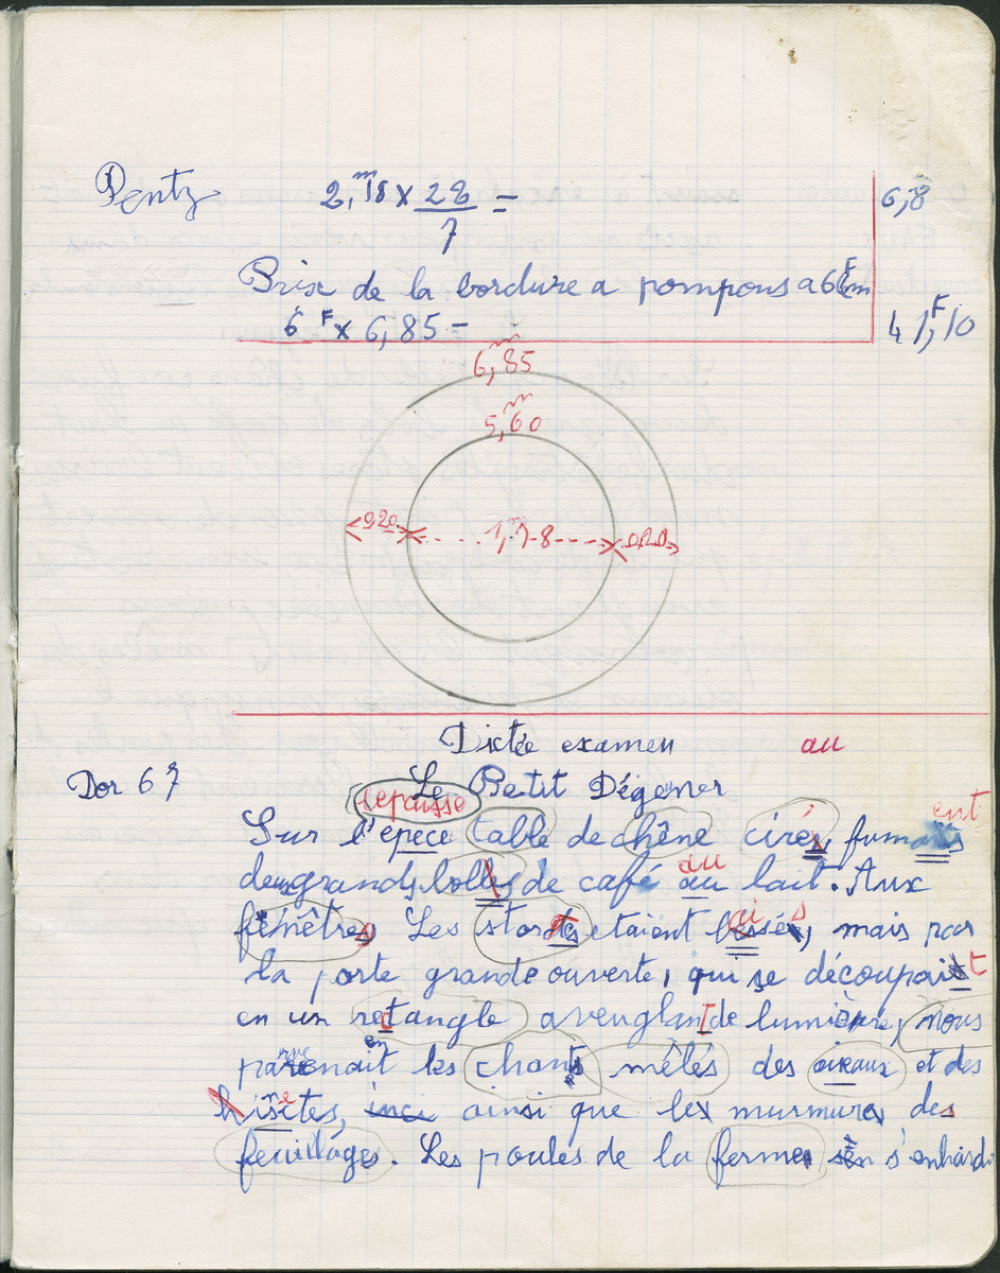 Pentz 2,18 m × 28/7 = 6,8
Prix de la bordure a pompons a 6F
6F × 6,85 = 41,F10
6,85 m
5,60 m
020 1,78 020
Dictée examen au
Dor 67 Le Petit Dégener
l'epaisse
Sur l'epece table de chêne cirés, fumais ent
deux grands bolles de café au lait. Aux
fênêtres Les stores etaient bessés, mais par
la porte grande ouverte, qui se découpait
en un rectangle aveuglant de lumière, nous
parvenait les chants mêlés des oiseaux et des
insectes, inci ainsi que les murmures des
feuillages. Les poules de la ferme s'en s'enhardi